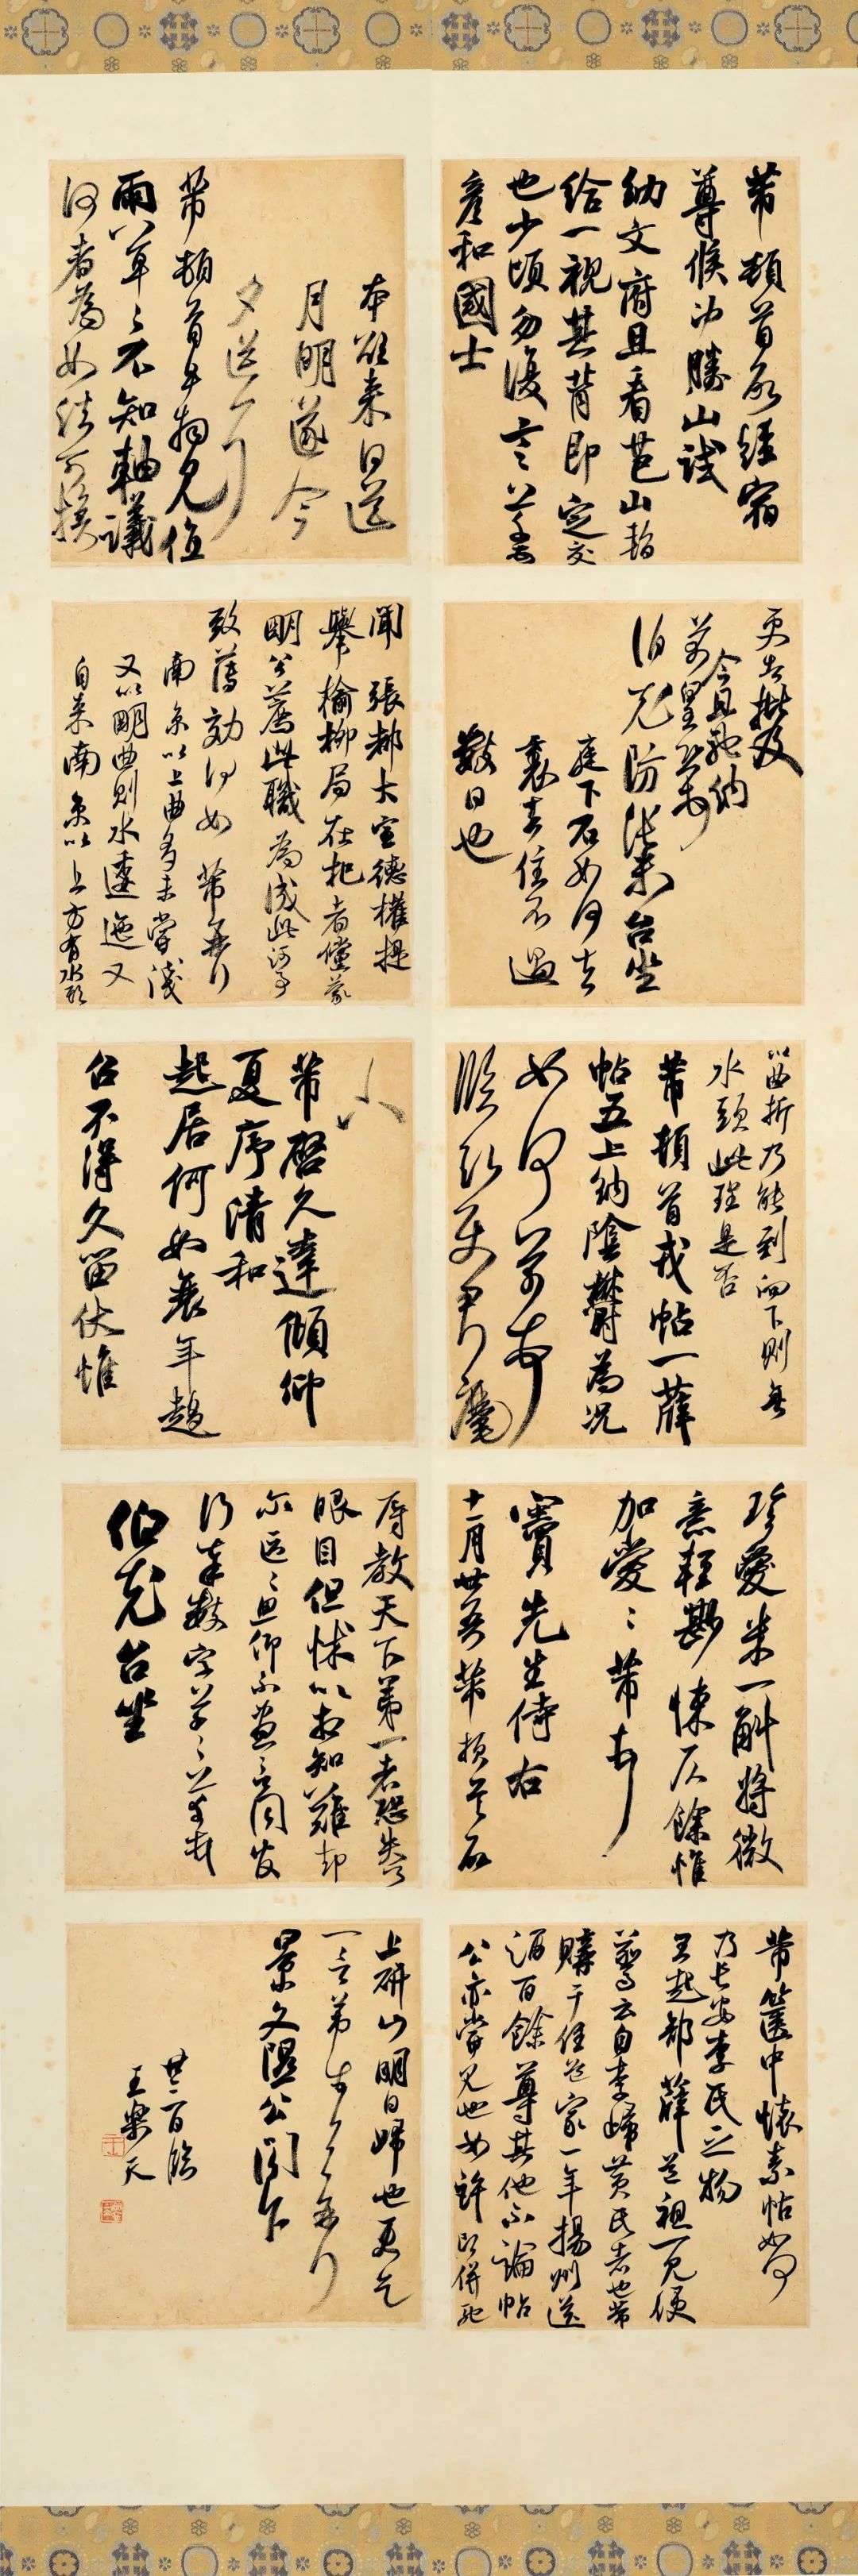 芾頓首啟經宿
尊候沖勝山試
納文府且看芭山暫
給一視其背即定交
也少頃勿復言芾
彥和國士
本欲來日送
月明遂今
夕送耳
芾頓首李物見值
雨草々不知軸議
何者為如結可換
更去批及
今且馳納
芾皇恐
伯充防禦台坐
庭下石如何去
裏去住不過
數日也
聞張都大宣德權提
舉榆柳局在杞者儻蒙
明公薦此職為成此河事
致薄效何如芾再行
南京以上曲多未嘗淺
又以明曲則水逶迤又
自來南京以上方有水取
以曲折乃能到向下則無
水頭此理是否
芾頓首戎帖一薛
帖五上納陰鬱為況
如何芾頓首
臨沂使君麾
下
芾啟久違傾仰
夏序清和
起居何如衰年趨
召不得久留伏惟
珍愛米一斛將微
意輕尠悚仄餘惟
加愛々芾頓首
竇先生侍右
十一月廿五芾頓首啟
辱教天下第一者恐失了
眼目但怵以相知難却
爾區々思仰不盡言同官
行奉數字草々芾頓首
伯充台坐
芾篋中懷素帖如何
乃長安李氏之物
王起部薛道祖一見便
驚云自李歸黃氏者也芾
購于任道家一年揚州送
酒百餘尊其他不論帖
公亦嘗見也如許即併馳
上研山明日歸也更乞
一言芾頓首再行
景文隰公閣下
廿二百臨
王樂天